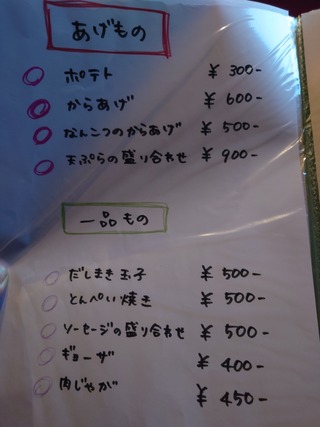 あげもの
ポテト ¥300-
からあげ ¥600-
なんこつのからあげ ¥500-
天ぷらの盛り合わせ ¥900-
一品もの
だしまき玉子 ¥500-
とんぺい焼き ¥500-
ソーセージの盛り合わせ ¥500-
ギョーザ ¥400-
肉じゃが ¥450-